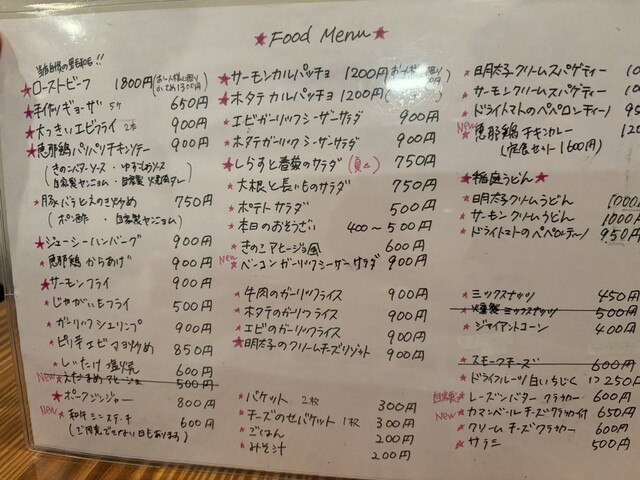 ★Food Menu★
★ローストビーフ 1800円
★手作りギョーザ 5ヶ 650円
★大っきいエビフライ 2本 900円
★恵那鶏パリパリチキンソテー 900円
★豚バラとスの炒め 750円
(ポン酢 ・自家製ヤンニョム)
★ジューシーハンバーグ 900円
★恵那鶏からあげ 900円
★サーモンフライ 900円
★じゃがいもフライ 500円
★ガーリックシュリンプ 900円
★ピリ辛エビマヨ炒め 850円
★しいたけ塩焼 600円
New
★えだまめアヒージョ 500円
★ポークジンジャー 800円
New
★和牛ミニステーキ 600円
(ご用意できない日もあります)
★サーモンカルパッチョ 1200円
★ホタテカルパッチョ 1200円
★エビガーリックシーザーサラダ 900円
★ホタテガーリックシーザーサラダ 900円
★しらすと春菊のサラダ 750円
★大根と長いものサラダ 750円
★ポテトサラダ 500円
★本日のおそうざい 400〜500円
★きのこアヒージョ風 600円
New
★ベーコンガーリックシーザーサラダ 900円
★牛肉のガーリックライス 900円
★ホタテのガーリックライス 900円
★エビのガーリックライス 900円
★明太子のクリームチーズリゾット 900円
★バケット 2枚 300円
★チーズのせバケット 1枚 300円
★ごはん 200円
★みそ汁 200円
★明太子クリームスパゲティー
★サーモンクリームスパゲティー
★ドライトマトのペペロンティーノ
New
★恵那鶏チキンカレー
(定食セット1600円)
★稲庭うどん★
★明太子クリームうどん 1000円
★サーモンクリームうどん 1000円
★ドライトマトのペペロンティーノ 950円
★ミックスナッツ 450円
★燻製ミックスナッツ 500円
★ジャイアントコーン 400円
★スモークチーズ 600円
★ドライフルーツ白いちじく 1コ250円
自家製
★レーズンバタークラッカー 600円
New
★カマンベールチーズクラッカー付 650円
★クリームチーズクラッカー 600円
★サラミ 500円